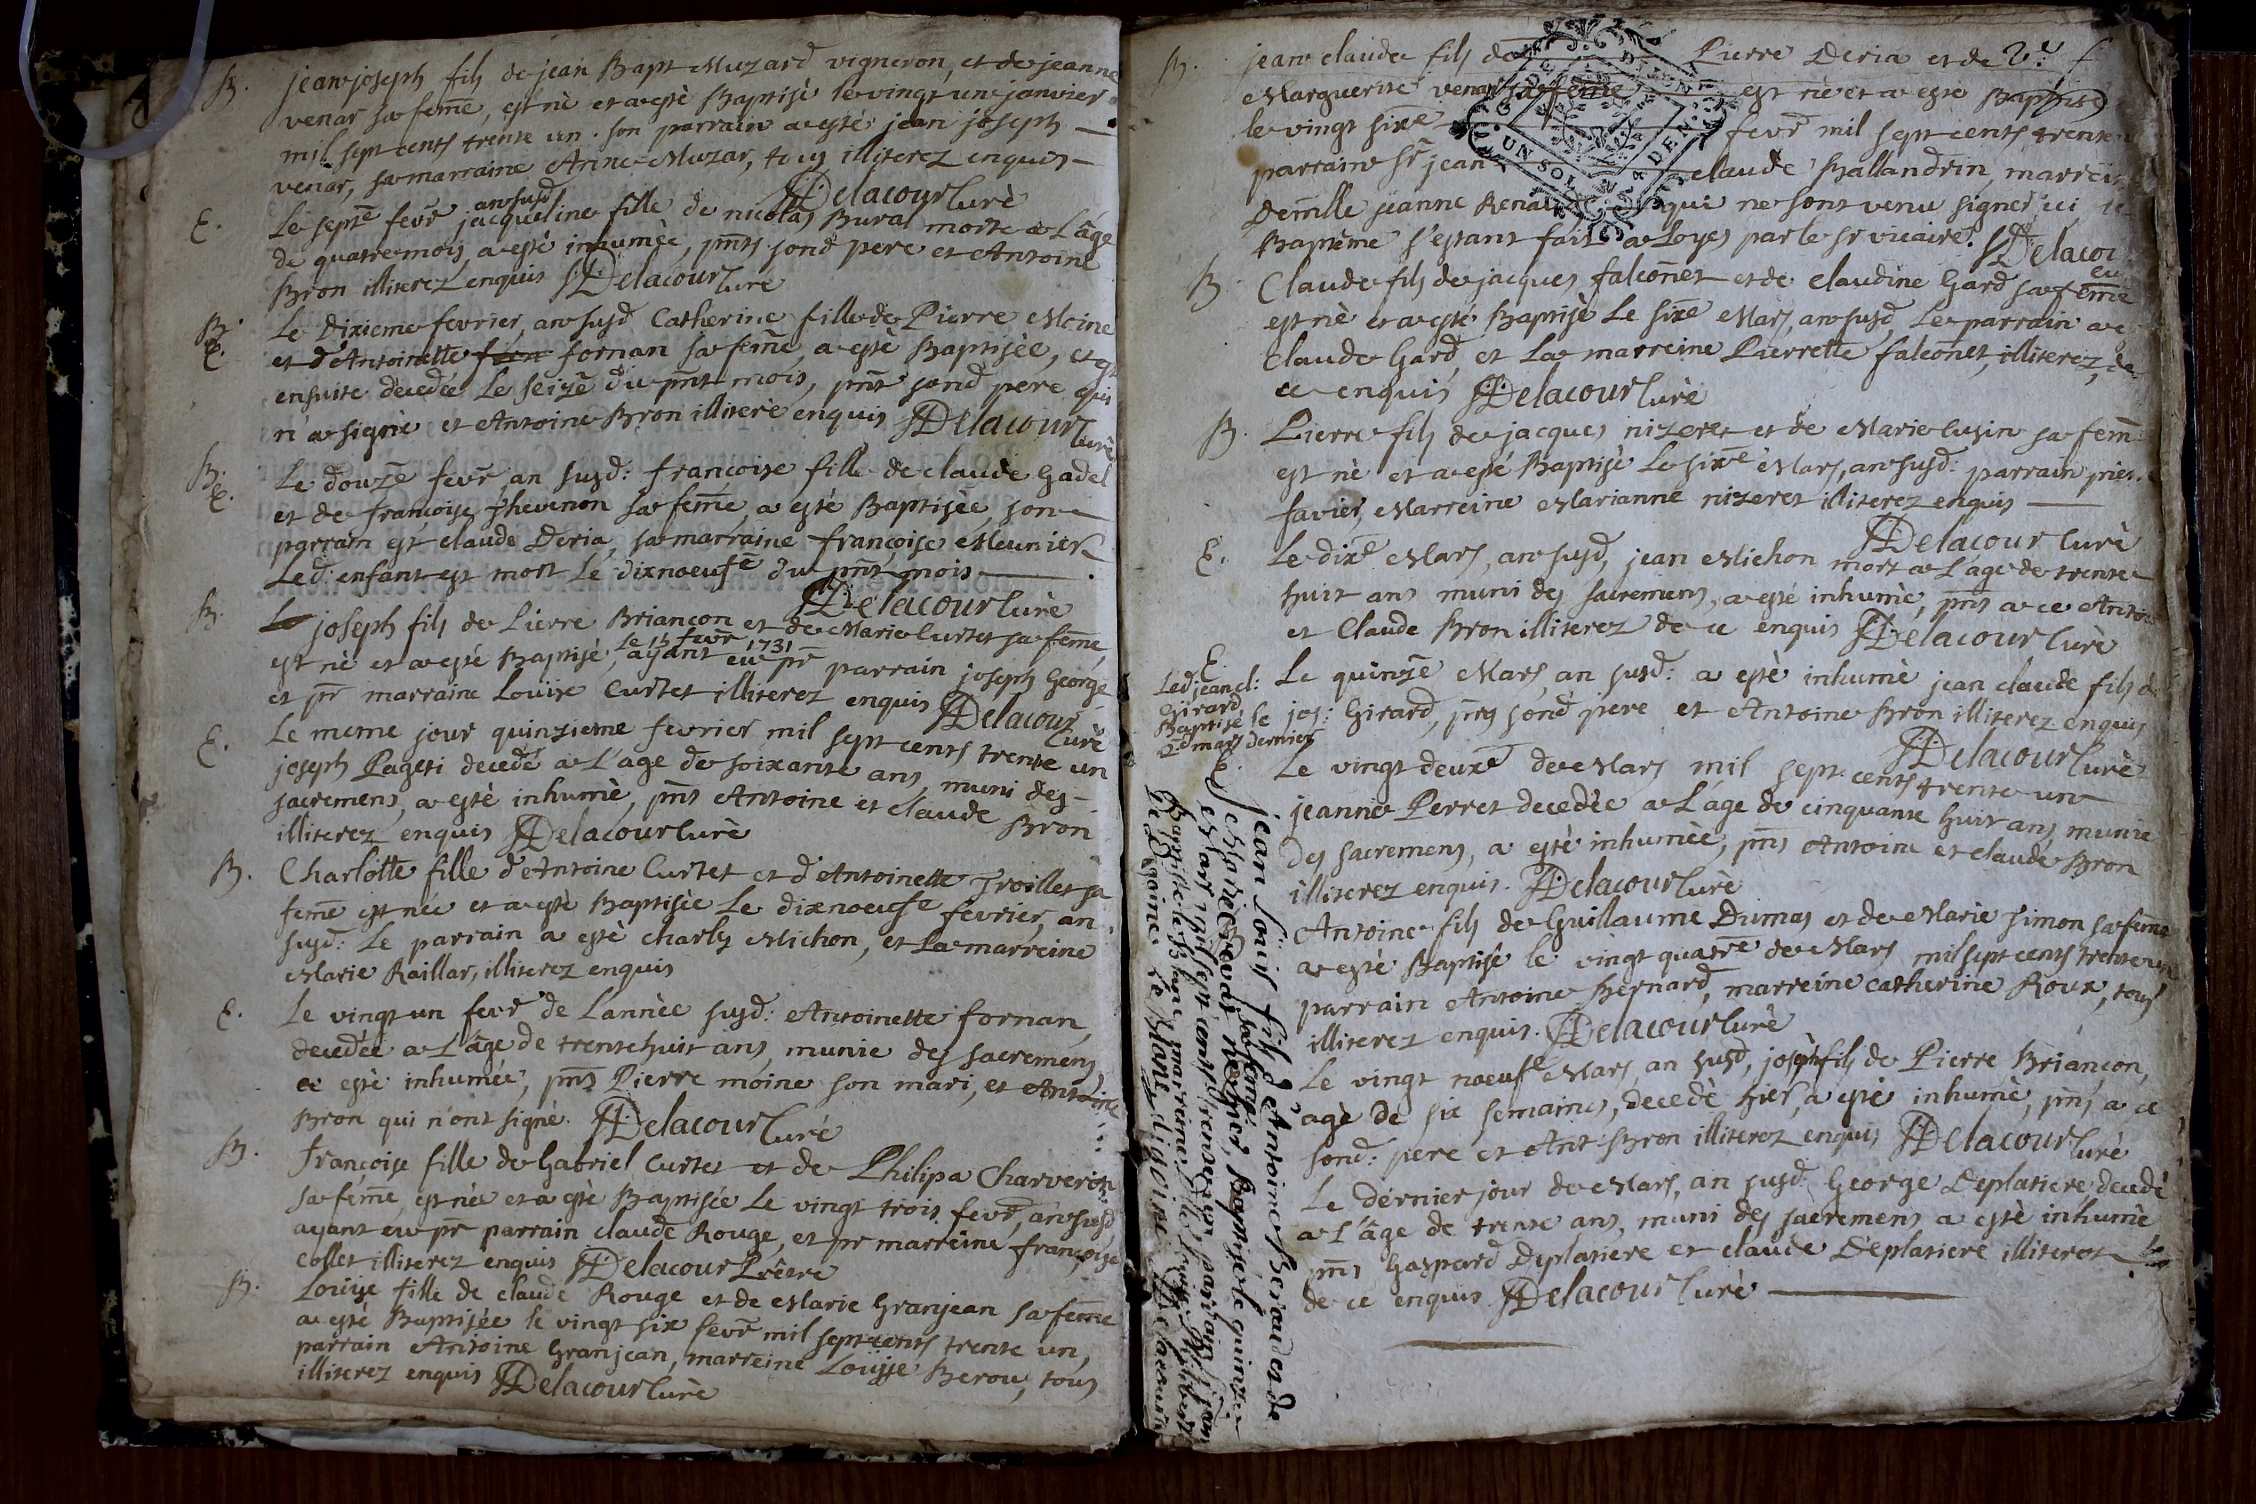 B. jean joseph fils de jean Bapt Muzard vigneron, et de jeanne
venar sa feme, est nè et a estè Baptisè le vingt un janvier
mil sept cents trente un. son parrain a estè jean joseph
venar, sa marraine Anne Muzar, tous illiterez enquis
Delacour Curè
E. Le septe fevr an susd jacqueline fille de nicolas Bural morte a L'âge
de quatre mois, a estè inhumèe, pnts sond pere et Antoine
Bron illiterez enquis Delacour Curè
B. Le Dixieme fevrier, an susd Catherine fille de Pierre Moine
E. et d'Antoinette fornan sa feme, a estè Baptisèe, et
ensuite decedèe Le seize du pnt mois, pnt sond pere qui
n'a signè et Antoine Bron illiterè enquis Delacour Curè
B. Le douze fevr, an susd: francoise fille de claude Gadel
E. et de francoise Thevenon sa feme, a estè Baptisèe, son
parrain est claude Deria, sa marraine françoise Meunier
Led: enfant est mort Le dixnoeufe du pnt mois
Delacour Curè
B. joseph fils de Pierre Briançon et de Marie Curtet sa feme,
est nè et a estè Baptisè, le 15 fevr 1731 ayant eu pr parrain joseph George
et pr marraine Louise Curtet illiterez enquis Delacour Curè
E. Le meme jour quinzieme fevrier mil sept cents trente un
joseph Pageti decedè a L'age de soixante ans, muni des
sacremens, a estè inhumè, pnts Antoine et claude Bron
illiterez enquis Delacour Curè
B. Charlotte fille d'Antoine Curtet et d'Antoinette Troillet sa
feme est nèe et a estè Baptisèe Le dixnoeufe fevrier, an
susd: Le parrain a estè charles Michon, et La marreine
Marie Raillar, illiterez enquis
E. Le vingt un fevr de L'annèe susd: Antoinette fornan
decedèe a L'âge de trente huit ans, munie des sacremens,
a estè inhumèe, pnts Pierre moine son mari, et Antoine
Bron qui n'ont signè. Delacour Curè
B. françoise fille de Gabriel Curtet et de Philipa Charveron
sa feme, est nèe et a estè Baptisèe Le vingt trois fevr, an susd
ayant eu pr parrain claude Rouge, et pr marreine françoise
Collet illiterez enquis Delacour Prêtre
B. Louise fille de claude Rouge et de Marie Granjean sa feme
a estè Baptisèe le vingt six fevr mil sept cents trente un,
parrain Antoine Granjean, marreine Louyse Berou, tous
illiterez enquis Delacour Curè
B. jean claude fils de Pierre Deria et de
Marguerite venar sa feme est nè et a estè Baptisè
le vingt sixe fevr mil sept cents trente
parrain sr jean claude Ballandrin, marreine
Demlle jeanne Renaud qui ne sont venu signer ici, le
Baptême s'estant fait a Loyes par le sr vicaire. Delacour
GEN DE DIJON
UN SOL 4 DEN.
B. Claude fils de jacques falconet et de claudine Gard sa feme
est nè et a esté Baptisè Le sixe Mars, an susd, Le parrain a eu
Claude Gard, et La marreine Pierrette falconet, illiterez, de
ce enquis Delacour Curè
B. Pierre fils de jacques nizeret et de Marie Cusin sa feme
est nè et a estè Baptisè Le sixe Mars, an susd: parrain
favier, Marreine Marianne nizeret illiterez enquis
Delacour Curè
E. Le dixe Mars, an susd, jean Michon mort a L'age de trente
huit ans muni des sacremens, a estè inhumè, pnts a ce Antoine
et Claude Bron illiterez de ce enquis Delacour Curè
E. Le quinze Mars, an susd: a estè inhumè jean claude fils de
jos: Girard, pnts sond pere et Antoine Bron illiterez enquis
Delacour Curè
Led jean cl:
Girard
Baptisè le
2e mars dernier
E. Le vingt deuxe de Mars mil sept cents trente un
jeanne Perret decedèe a L'âge de cinquante huit ans, munie
des sacremens, a estè inhumèe, pnts Antoine et claude Bron
illiterez enquis. Delacour Curè
Antoine fils de Guillaume Dumas et de Marie Simon sa feme
a estè Baptisè le vingt quatre de Mars mil sept cents trente un
parrain Antoine Bernard, marreine catherine Roux, tous
illiterez enquis. Delacour Curè
Le vingt noeufe Mars, an susd, joseph fils de Pierre Briançon,
agè de six semaines, decedè hier, a estè inhumè, pnts a ce
sond: pere et Ant: Bron illiterez enquis Delacour Curè
Le dernier jour de Mars, an susd, George Deplatiere decedè
a L'âge de trente ans, muni des sacremens a estè inhumè
pnts Gaspard Deplatiere et claude Deplatiere illiterez
de ce enquis Delacour Curè
jean Loüis fils d'Antoine Beraud et de
Marie sa feme, Baptisè le quinze
Mars mil sept cents trente un parrain
marreine